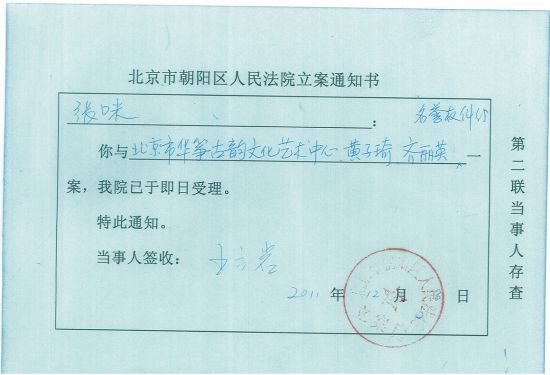 北京市朝阳区人民法院立案通知书
张咪： 名誉权纠纷
你与北京市华筝古韵文化艺术中心、黄子琦 齐丽英一
案，我院已于即日受理。
特此通知。
当事人签收：
2011年12月 日
第二联当事人存查